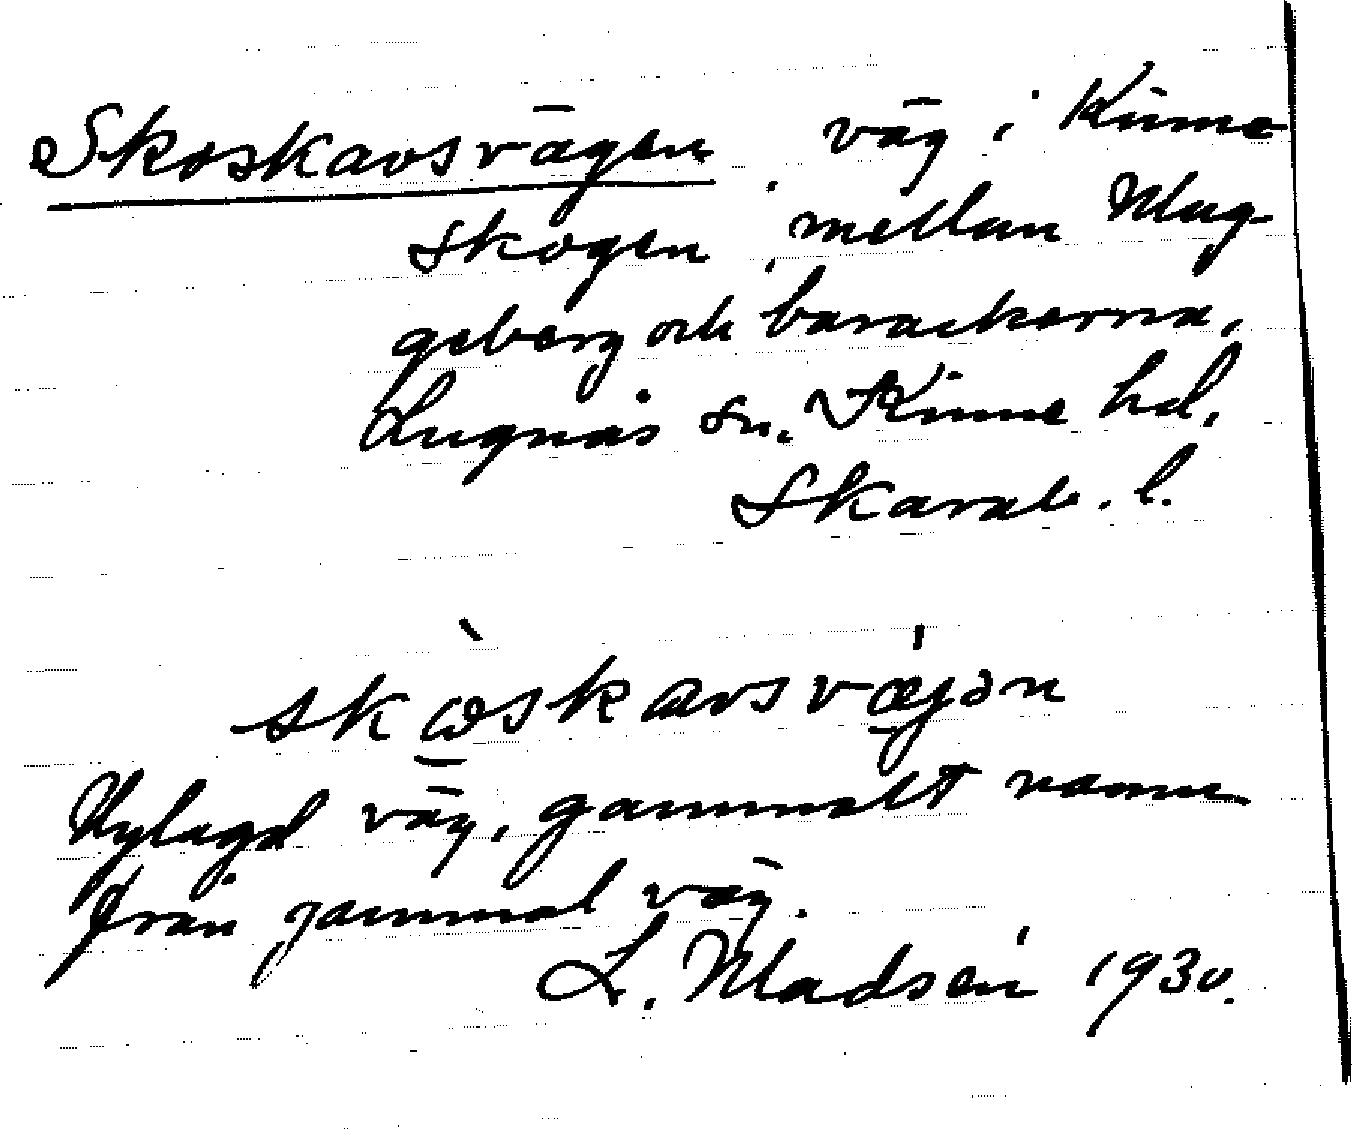 Skoskavsvägen, väg i Kinne
skogen, mellan Mag-
geberg och barackerna,
Lugnås sn. Kinne hd,
Skarab. l.
skɷ̀skavsvæ̀jən
Nylagd väg, gammalt namn
från gammal väg.
L. Madsén 1930.